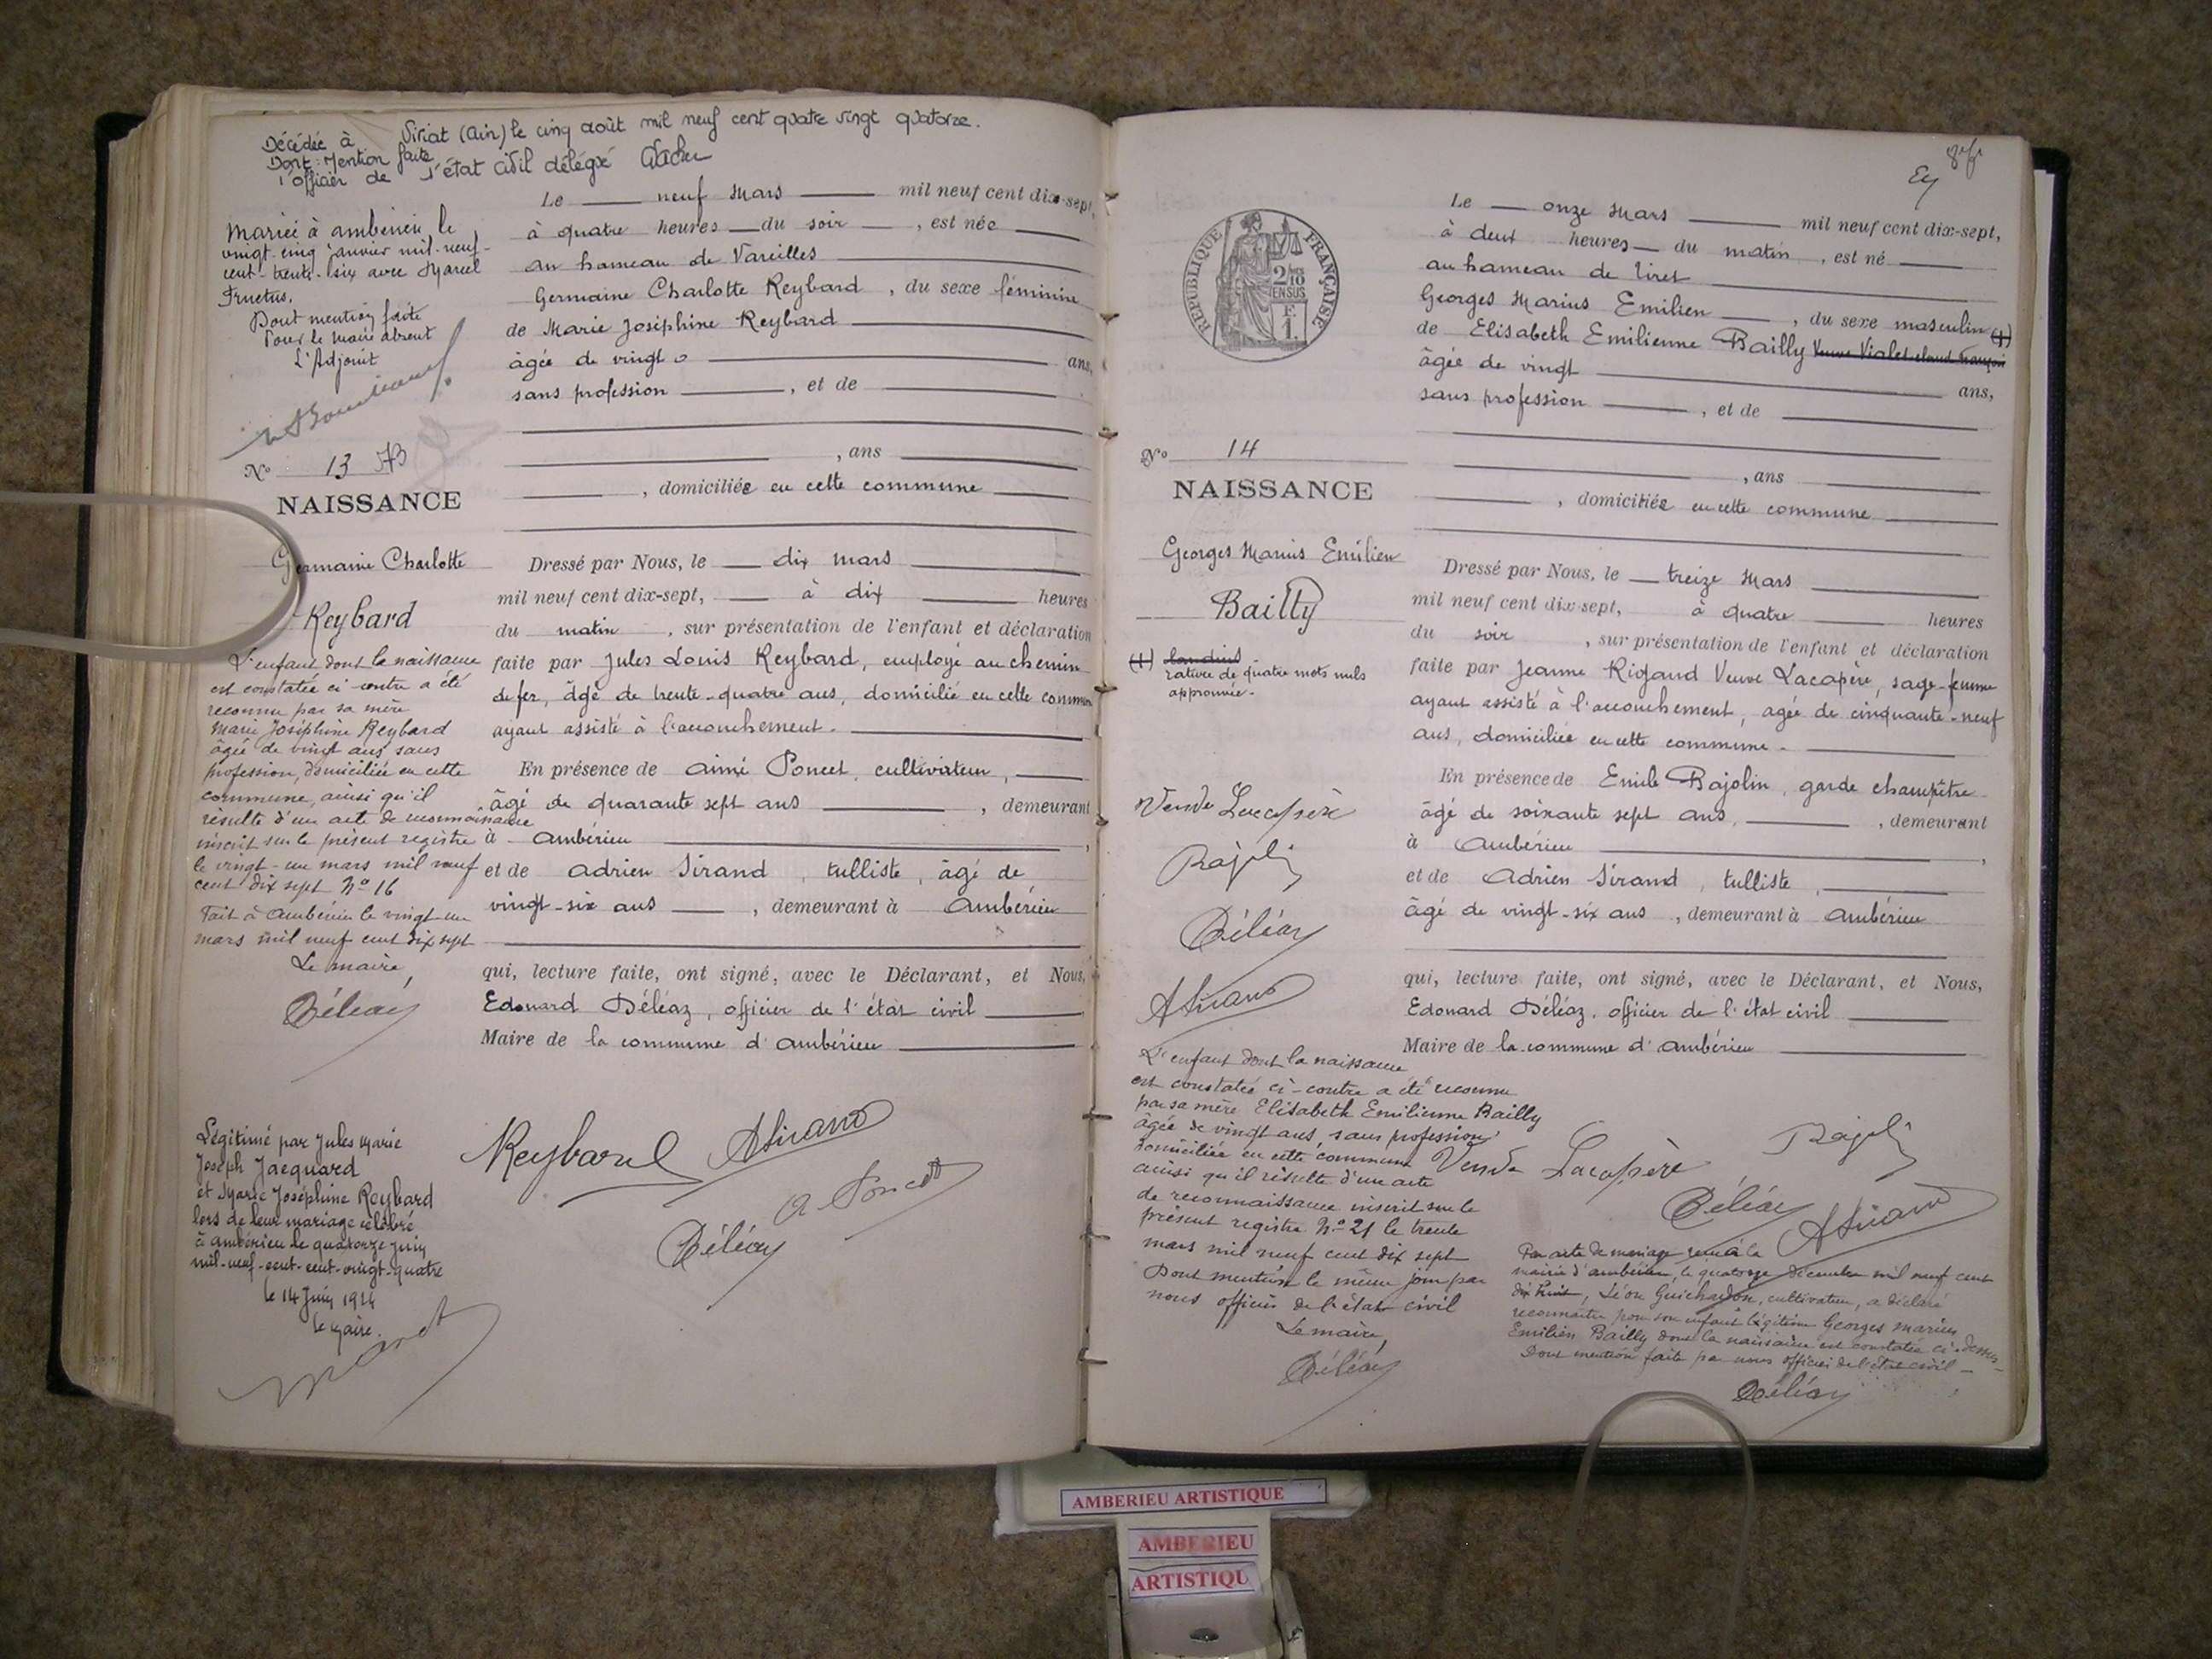 Décédée à Viriat (Ain) le cinq août mil neuf cent quatre vingt quatorze.
Dont Mention faite
l'officier de l'état civil délégué
Mariée à ambérieu le
vingt-cinq janvier mil-neuf-
cent-trente-six avec Marcel
Fructus.
Dont mention faite
Pour le maire absent
L'Adjoint
No 13
NAISSANCE
Germaine Charlotte
Reybard
L'enfant dont la naissance
est constatée ci-contre a été
reconnu par sa mère
Marie Joséphine Reybard
âgée de vingt ans sans
profession, domiciliée en cette
commune, ainsi qu'il
résulte d'un acte de reconnaissance
inscrit sur le présent registre
le vingt-un mars mil neuf
cent dix sept No 16
Fait à Ambérieu le vingt un
mars mil neuf cent dix sept
Le maire,
Déléaz
Légitimé par Jules Marie
Joseph Jacquard
et Marie Joséphine Reybard
lors de leur mariage célébré
à ambérieu le quatorze juin
mil-neuf-cent-cent-vingt-quatre
le 14 Juin 1924
le Maire.
Le neuf Mars mil neuf cent dix-sept,
à quatre heures du soir, est née
au hameau de Vareilles
Germaine Charlotte Reybard, du sexe féminine
de Marie Joséphine Reybard
âgée de vingt ans,
sans profession, et de
, ans
, domiciliée en cette commune
Dressé par Nous, le dix mars
mil neuf cent dix-sept, à dix heures
du matin, sur présentation de l'enfant et déclaration
faite par Jules Louis Reybard, employé au chemin
de fer, âgé de trente-quatre ans, domicilié en cette commune
ayant assisté à l'accouchement.
En présence de Aimé Poncet, cultivateur,
âgé de quarante sept ans, demeurant
à Ambérieu,
et de Adrien Sirand, tulliste, âgé de
vingt-six ans, demeurant à Ambérieu
qui, lecture faite, ont signé, avec le Déclarant, et Nous,
Edouard Déléaz, officier de l'état civil
Maire de la commune d'Ambérieu
Reybard ASirand
A Poncet
Déléaz
RÉPUBLIQUE FRANÇAISE
2/10 EN SUS
F. 1.
No 14
NAISSANCE
Georges Marius Emilien
Bailly
(1)
rature de quatre mots nuls
approuvée.
Veuve Lacapère
Rajolin
Déléaz
ASirand
Le onze Mars mil neuf cent dix-sept,
à deux heures du matin, est né
au hameau de Tiret
Georges Marius Emilien, du sexe masculin (1)
de Elisabeth Emilienne Bailly
âgée de vingt ans,
sans profession, et de
, ans
, domiciliée en cette commune
Dressé par Nous, le treize Mars
mil neuf cent dix-sept, à quatre heures
du soir, sur présentation de l'enfant et déclaration
faite par Jeanne Rigaud Veuve Lacapère, sage-femme
ayant assisté à l'accouchement, agée de cinquante-neuf
ans, domiciliée en cette commune.
En présence de Emile Rajolin, garde champêtre
âgé de soixante sept ans, demeurant
à Ambérieu,
et de Adrien Sirand, tulliste,
âgé de vingt-six ans, demeurant à Ambérieu
qui, lecture faite, ont signé, avec le Déclarant, et Nous,
Edouard Déléaz, officier de l'état civil
Maire de la commune d'Ambérieu
L'enfant dont la naissance
est constatée ci-contre a été reconnu
par sa mère Elisabeth Emilienne Bailly
âgée de vingt ans, sans profession,
domiciliée en cette commune
ainsi qu'il résulte d'un acte
de reconnaissance inscrit sur le
présent registre No 21 le trente
mars mil neuf cent dix sept
Dont mention le même jour par
nous officier de l'état civil
Le maire,
Déléaz
Veuve Lacapère Rajolin
Déléaz ASirand
Par acte de mariage reçu à la
mairie d'ambérieu, le quatorze décembre mil neuf cent
dix huit, Léon Guichardon, cultivateur, a déclaré
reconnaître pour son enfant légitime Georges Marius
Emilien Bailly dont la naissance est constatée ci-dessus-
Dont mention faite par nous officier de l'état civil -
Déléaz
AMBERIEU ARTISTIQUE
AMBERIEU
ARTISTIQU